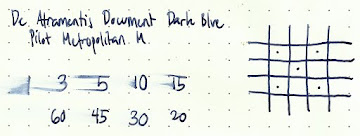 De Atramentis Document Dark blue
Pilot Metropolitan M.
1 3 5 10 15
60 45 30 20